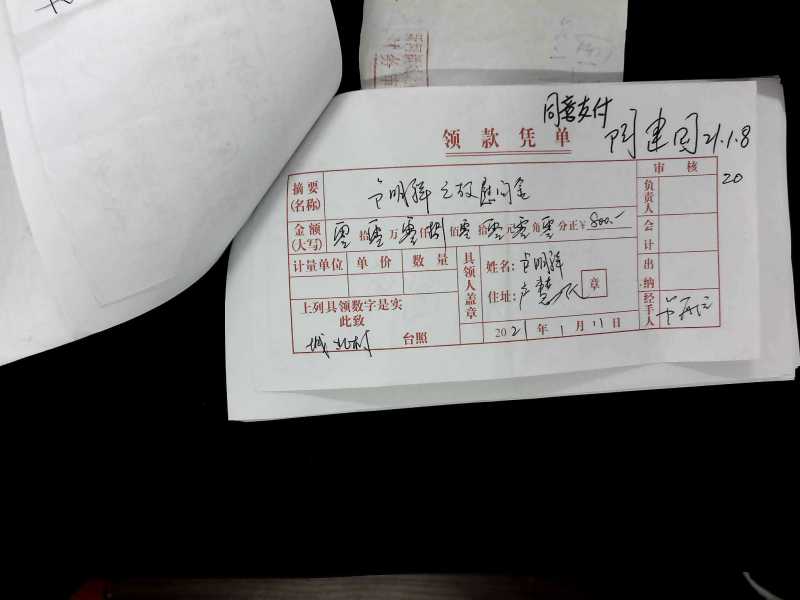 同意支付
领款凭单
21.1.8
20
摘要
(名称)
明祥 亡故慰问金
审核
负责人
会计
出纳
经手人
金额
(大写)
零拾零万零仟捌佰零拾零元零角零分正¥800.-
计量单位 单价 数量
具领人盖章
姓名: 明祥
住址:
章
上列具领数字是实
此致
城北村 台照
2021年1月11日